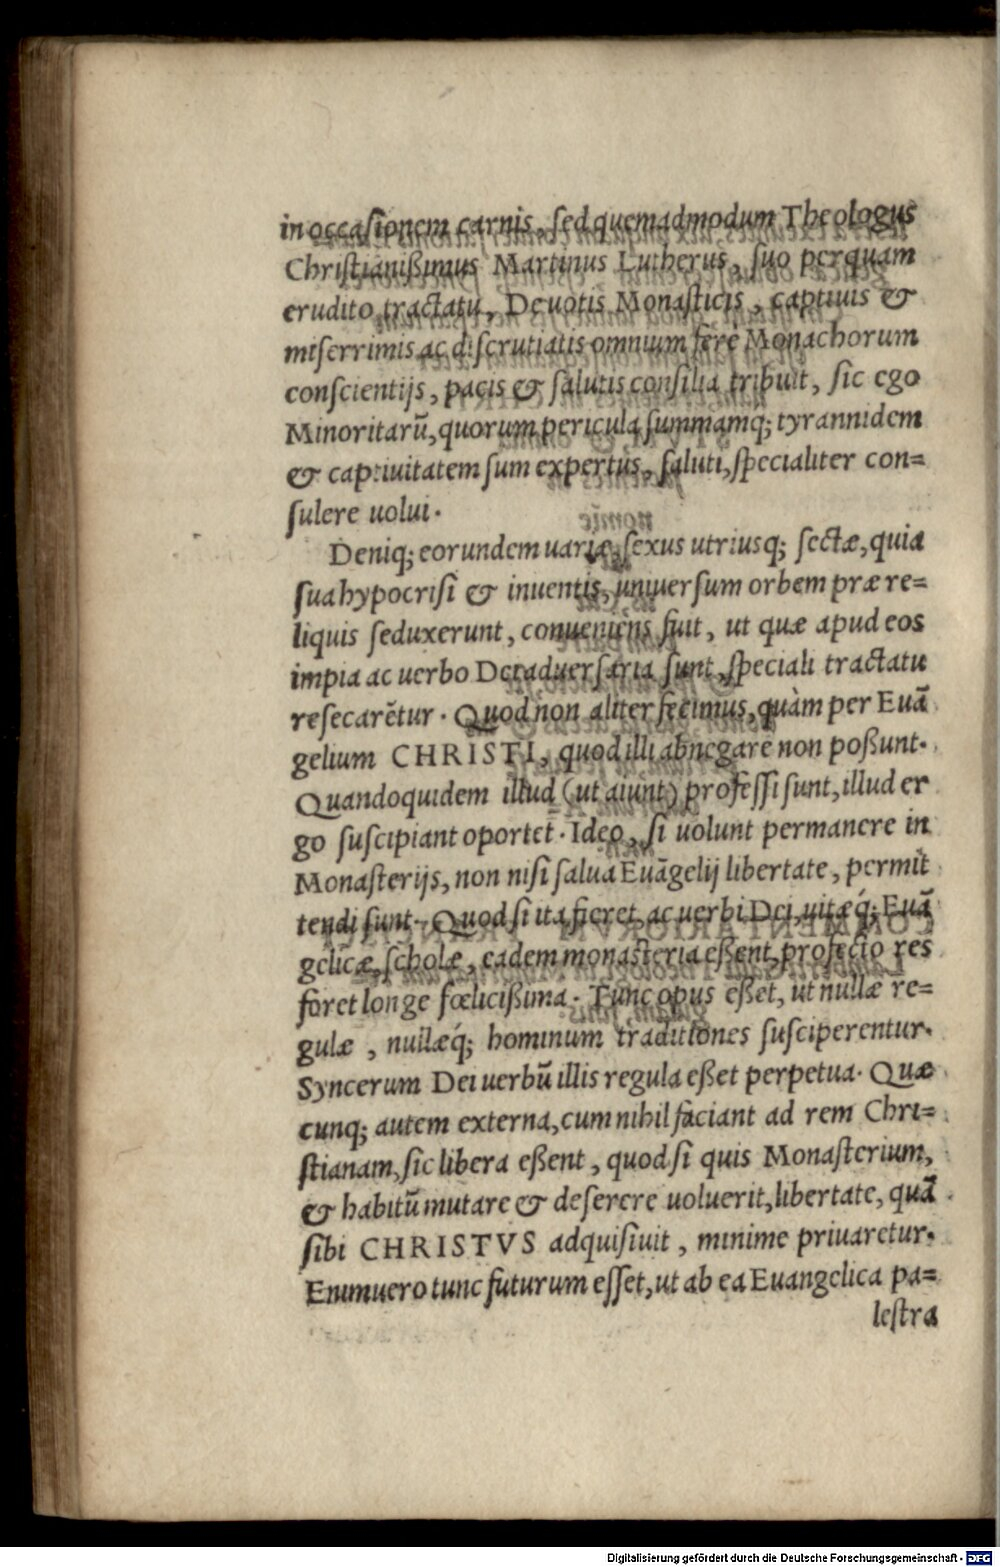 in occaſionem carnis, ſed quemadmodum Theologus
Chriſtianißimus Martinus Lutherus, ſuo perquam
erudito tractatu, Deuotis Monaſticis, captiuis &
miſerrimis ac diſcrutiatis omnium fere Monachorum
conſcientijs, pacis & ſalutis conſilia tribuit, ſic ego
Minoritarũ, quorum pericula ſummamq; tyrannidem
& captiuitatem ſum expertus, ſaluti, ſpecialiter con=
ſulere uolui.
Deniq; eorundem uariæ, ſexus utriusq; ſectæ, quia
ſua hypocriſi & inuentis, uniuerſum orbem præ re=
liquis ſeduxerunt, conueniens fuit, ut quæ apud eos
impia ac uerbo Dei aduerſaria ſunt, ſpeciali tractatu
reſecarẽtur. Quod non aliter fecimus, quàm per Euã
gelium CHRISTI, quod illi abnegare non poßunt.
Quandoquidem illud (ut aiunt) profeſſi ſunt, illud er
go ſuſcipiant oportet. Ideo, ſi uolunt permanere in
Monaſterijs, non niſi ſalua Euãgelij libertate, permit
tendi ſunt. Quod ſi ita fieret, ac uerbi Dei, uitæq́; Euã
gelicæ, ſcholæ, eadem monaſteria eßent, profecto res
foret longe fœlicißima. Tunc opus eßet, ut nullæ re=
gulæ, nullæq́; hominum traditiones ſuſciperentur.
Syncerum Dei uerbũ illis regula eßet perpetua. Quæ
cunq; autem externa, cum nihil faciant ad rem Chri=
ſtianam, ſic libera eßent, quod ſi quis Monaſterium,
& habitũ mutare & deſerere uoluerit, libertate, quã
ſibi CHRISTVS adquiſiuit, minime priuaretur.
Enimuero tunc futurum eſſet, ut ab ea Euangelica pa=
leſtra
Digitalisierung gefördert durch die Deutsche Forschungsgemeinschaft - DFG